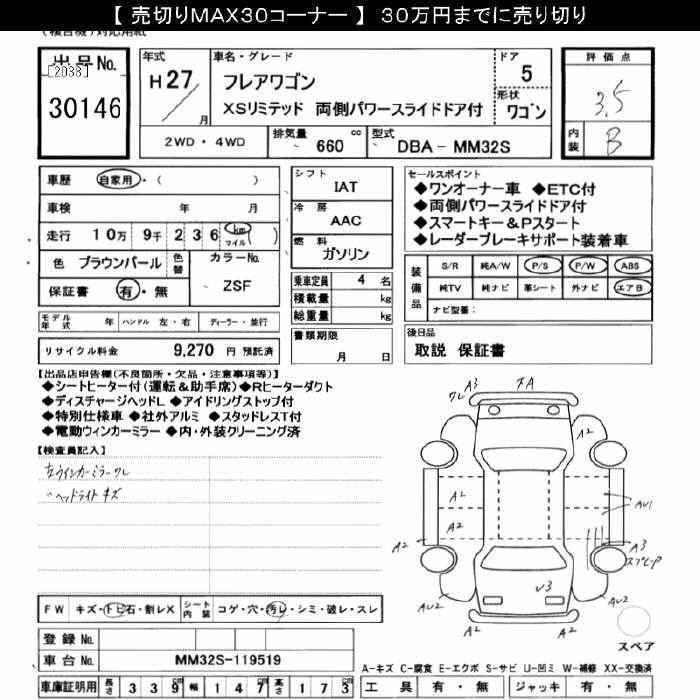 【 売切りMAX30コーナー 】 30万円までに売り切り
出品No.
[2038]
30146
年式
H27
月
車名・グレード
フレアワゴン
XSリミテッド 両側パワースライドドア付
ドア
5
形状
ワゴン
評価点
3.5
内装
B
2WD・4WD
排気量 660 cc
型式 DBA-MM32S
車歴 自家用・( )
車検 年 月
走行 10万 9千 2 3 6 km マイル )
色 ブラウンパール 色替
カラーNo.
ZSF
保証書 有・無
モデル年式 年 ハンドル 左・右 ディーラー・並行
リサイクル料金 9,270 円 預託済
シフト
IAT
冷房
AAC
燃料
ガソリン
乗車定員 4 名
積載量 kg
総重量 kg
書類期限
月 日
セールスポイント
◆ワンオーナー車 ◆ETC付
◆両側パワースライドドア付
◆スマートキー＆Pスタート
◆レーダーブレーキサポート装着車
装備品
S/R 純A/W P/S P/W ABS
純TV 純ナビ 革シート 外ナビ エアB
ナビ型番:
後日品
取説 保証書
【出品店申告欄(不良箇所・欠品・注意事項等)】
◆シートヒーター付(運転＆助手席)◆Rヒーターダクト
◆ディスチャージヘッドL ◆アイドリングストップ付
◆特別仕様車 ◆社外アルミ ◆スタッドレスT付
◆電動ウィンカーミラー ◆内・外装クリーニング済
【検査員記入】
左ウインカーミラーワレ
〃ヘッドライトキズ
A3
ワレ
A
A2
A2
A2
A2
AU1
A2
A3
スプピーP
AU2
AU2
U3
A2
スペア
FW キズ・トビ石・割レX
シート内装 コゲ・穴・汚レ・シミ・破レ・スレ
登録No.
車台No. MM32S-119519
車庫証明用 長さ 3 3 9 cm 幅 1 4 7 cm 高さ 1 7 3 cm
A-キズ C-腐食 E-エクボ S-サビ U-凹ミ W-補修 XX-交換済
工具 有・無 ジャッキ 有・無